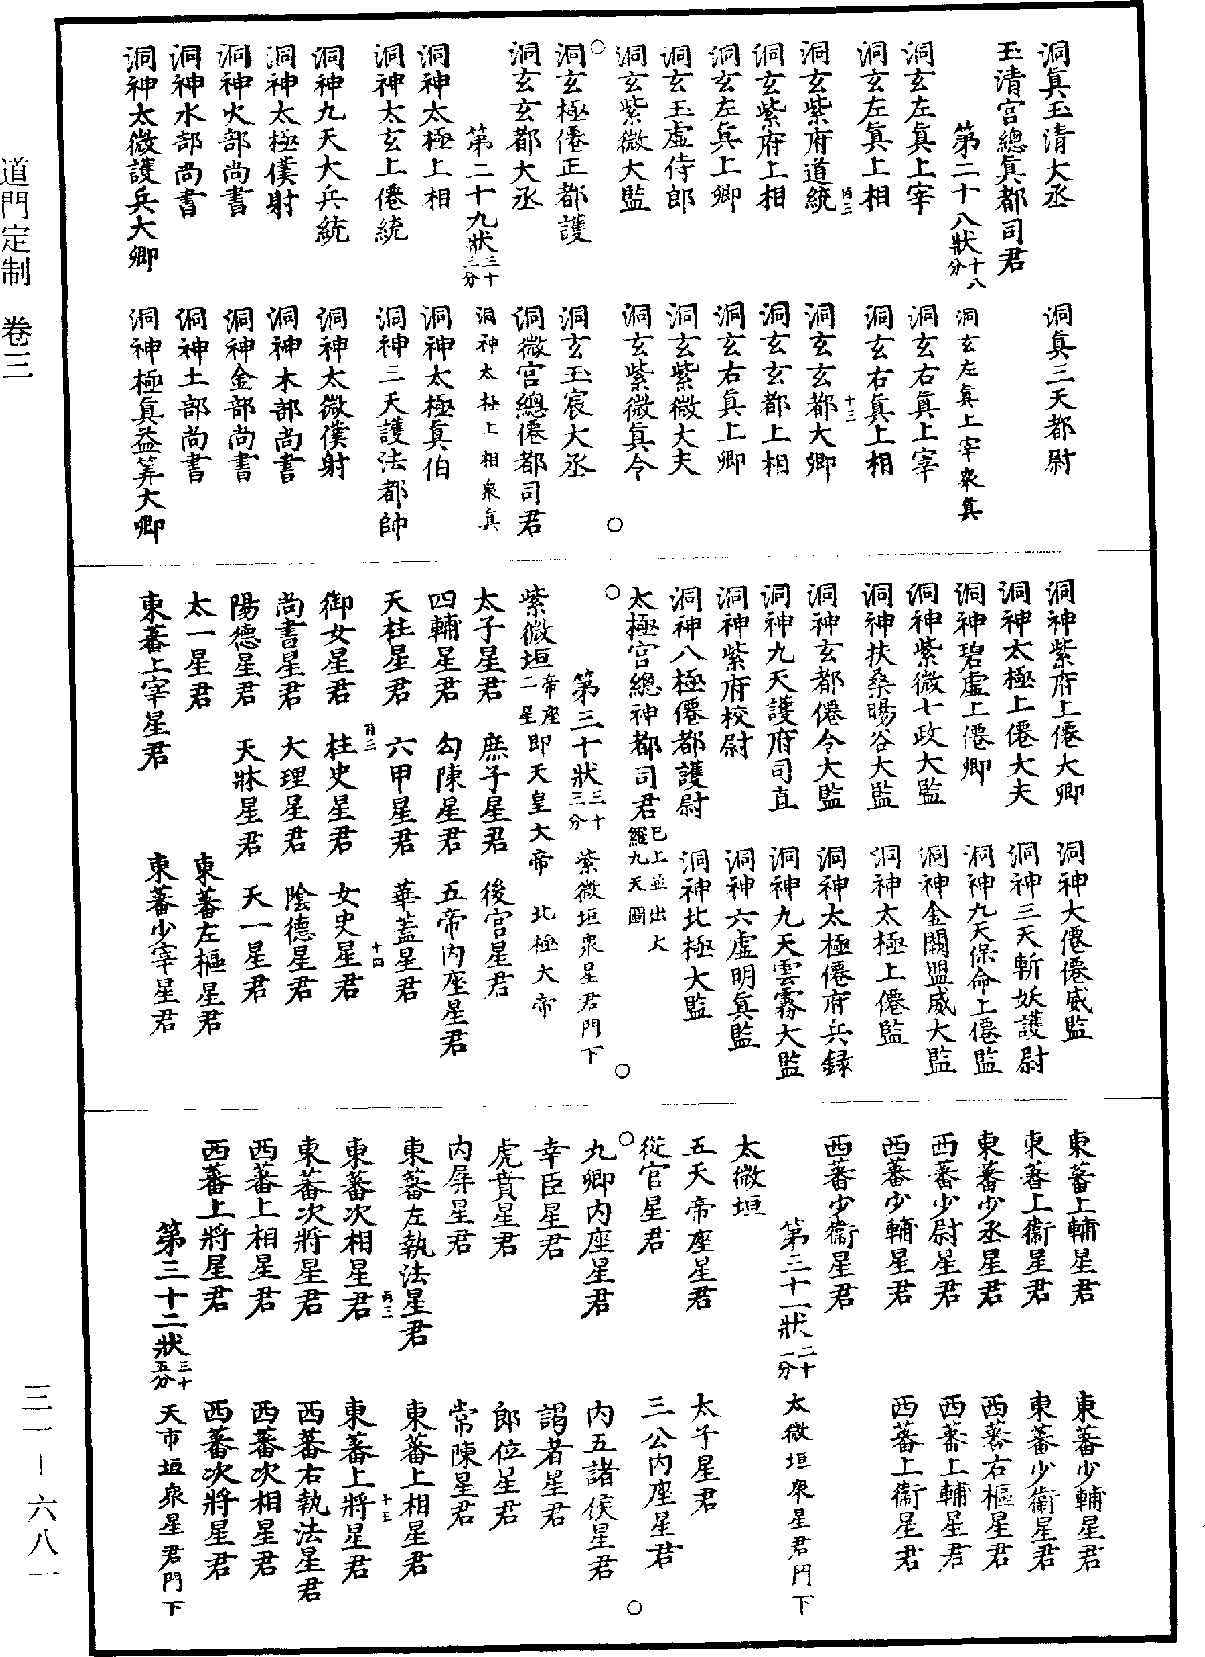 洞真玉清大丞　洞真三天都尉
玉清宮總真都司君
第二十八狀十八分　洞玄左真上宰衆真
洞玄左真上宰　洞玄右真上宰
洞玄左真上相　洞玄右真上相
洞玄紫府道統　洞玄玄都大卿
洞玄紫府上相　洞玄玄都上相
洞玄左真上卿　洞玄右真上卿
洞玄玉虛侍郎　洞玄紫微大夫
洞玄紫微大監　洞玄紫微真令
洞玄極僊正都護　洞玄玉宸大丞
洞玄玄都大丞　洞微宮總僊都司君
第二十九狀三十二分　洞神太極上相衆真
洞神太極上相　洞神太極真伯
洞神太玄上僊統　洞神三天護法都帥
洞神九天大兵統　洞神太微僕射
洞神太極僕射　洞神木部尚書
洞神火部尚書　洞神金部尚書
洞神水部尚書　洞神土部尚書
洞神太微護兵大卿　洞神極真益筭大卿
洞神紫府上僊大卿　洞神大僊僊威監
洞神太極上僊大夫　洞神三天斬妖護尉
洞神碧虛上僊卿　洞神九天保命上僊監
洞神紫微七政大監　洞神金闕盟威大監
洞神扶桑暘谷大監　洞神太極上僊監
洞神玄都僊令大監　洞神太極僊府兵録
洞神九天護府司直　洞神九天雲霧大監
洞神紫府校尉　洞神六虛明真監
洞神八極僊都護尉　洞神北極大監
太極宮總神都司君已上並出大羅九天圖
第三十狀三十三分　紫微垣衆星君門下
紫微垣帝座二星即天皇大帝　北極大帝
太子星君　庶子星君　後宮星君
四輔星君　勾陳星君　五帝內座星君
天柱星君　六甲星君　華蓋星君
御女星君　柱史星君　女史星君
尚書星君　大理星君　陰德星君
陽德星君　天牀星君　天一星君
太一星君　東蕃左樞星君
東蕃上宰星君　東蕃少宰星君
東蕃上輔星君　東蕃少輔星君
東蕃上衛星君　東蕃少衛星君
東蕃少丞星君　西蕃右樞星君
西蕃少尉星君　西蕃上輔星君
西蕃少輔星君　西蕃上衛星君
西蕃少衛星君
第三十一狀二十一分　太微垣衆星君門下
太微垣
五天帝座星君　太子星君
從官星君　三公內座星君
九卿內座星君　內五諸侯星君
幸臣星君　謁者星君
虎賁星君　郎位星君
內屏星君　常陳星君
東蕃左執法星君　東蕃上相星君
東蕃次相星君　東蕃上將星君
東蕃次將星君　西蕃右執法星君
西蕃上相星君　西蕃次相星君
西蕃上將星君　西蕃次將星君
第三十二狀三十五分　天市垣衆星君門下
道門定制　卷三
三一－六八一